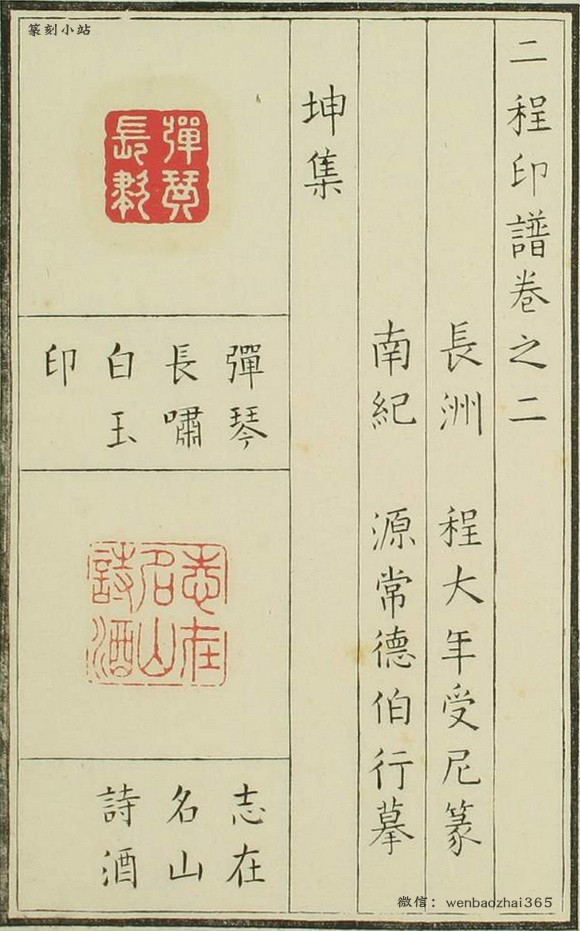 篆刻小站
二程印譜卷之二
長洲 程大年受尼篆
南紀 源常德伯行摹
坤集
彈琴
長嘯
彈琴
長嘯
白玉
印
志在
名山
詩酒
志在
名山
詩酒
微信: wenbaozhai365